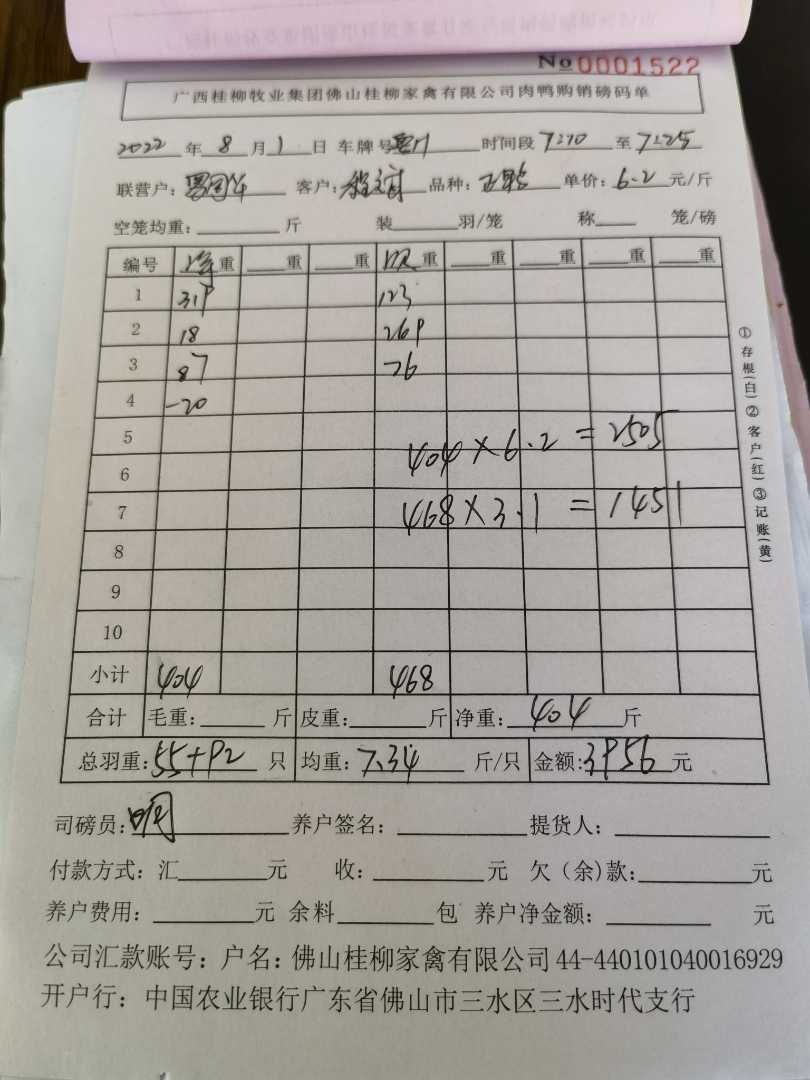 No 0001522
广西桂柳牧业集团佛山桂柳家禽有限公司肉鸭购销磅码单
2022年8月1日 车牌号 时间段7:10至7:25
联营户: 客户: 品种: 单价:6.2元/斤
空笼均重: 斤 装 羽/笼 称 笼/磅
编号 重 重 重 重 重 重 重 重
1 319 123
2 18 269
3 87 76
4 -20
5 404×6.2=2505
6
7 468×3.1=1451
8
9
10
小计 404 468
合计 毛重: 斤 皮重: 斤 净重:404斤
总羽重:55+92只 均重:7.34斤/只 金额:3956元
司磅员: 养户签名: 提货人:
付款方式:汇 元 收: 元 欠(余)款: 元
养户费用: 元 余料 包 养户净金额: 元
公司汇款账号:户名:佛山桂柳家禽有限公司44-440101040016929
开户行:中国农业银行广东省佛山市三水区三水时代支行
①存根(白)②客户(红)③记账(黄)